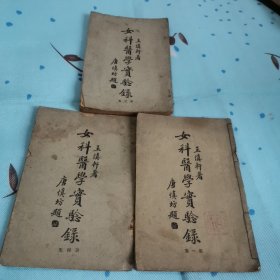 王慎軒著
女科醫學實驗錄
唐慎坊題
王慎軒著
女科醫學實驗錄
唐慎坊題
第四集
王慎軒著
女科醫學實驗錄
唐慎坊題
第一集